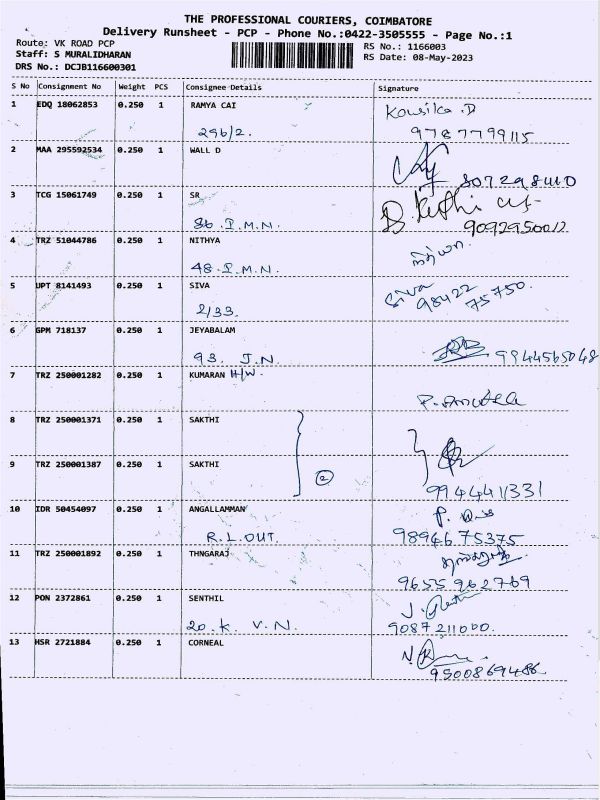 THE PROFESSIONAL COURIERS, COIMBATORE
Delivery Runsheet - PCP - Phone No.:0422-3505555 - Page No.:1
Route: VK ROAD PCP
RS No.: 1166003
Staff: S MURALIDHARAN
RS Date: 08-May-2023
DRS No.: DCJB116600301
S No Consignment No Weight PCS Consignee Details Signature
1 EDQ 18062853 0.250 1 RAMYA CAI Kousika.D
296/2. 9787799115
2 MAA 295592534 0.250 1 WALL D
3 TCG 15061749 0.250 1 SR
86.I.M.N. 9092950012
4 TRZ 51044786 0.250 1 NITHYA நித்யா
48.I.M.N.
5 UPT 8141493 0.250 1 SIVA Siva
2/33. 98422 75750.
6 GPM 718137 0.250 1 JEYABALAM
93. J.N. 9944565048
7 TRZ 250001282 0.250 1 KUMARAN H/W.
8 TRZ 250001371 0.250 1 SAKTHI
9 TRZ 250001387 0.250 1 SAKTHI
2
9944441331
10 IDR 50454097 0.250 1 ANGALLAMMAN
R.L.OUT. 9894675375
11 TRZ 250001892 0.250 1 THNGARAJ
9655962769
12 PON 2372861 0.250 1 SENTHIL
20. K. V.N. 9087211000.
13 HSR 2721884 0.250 1 CORNEAL
9500869486